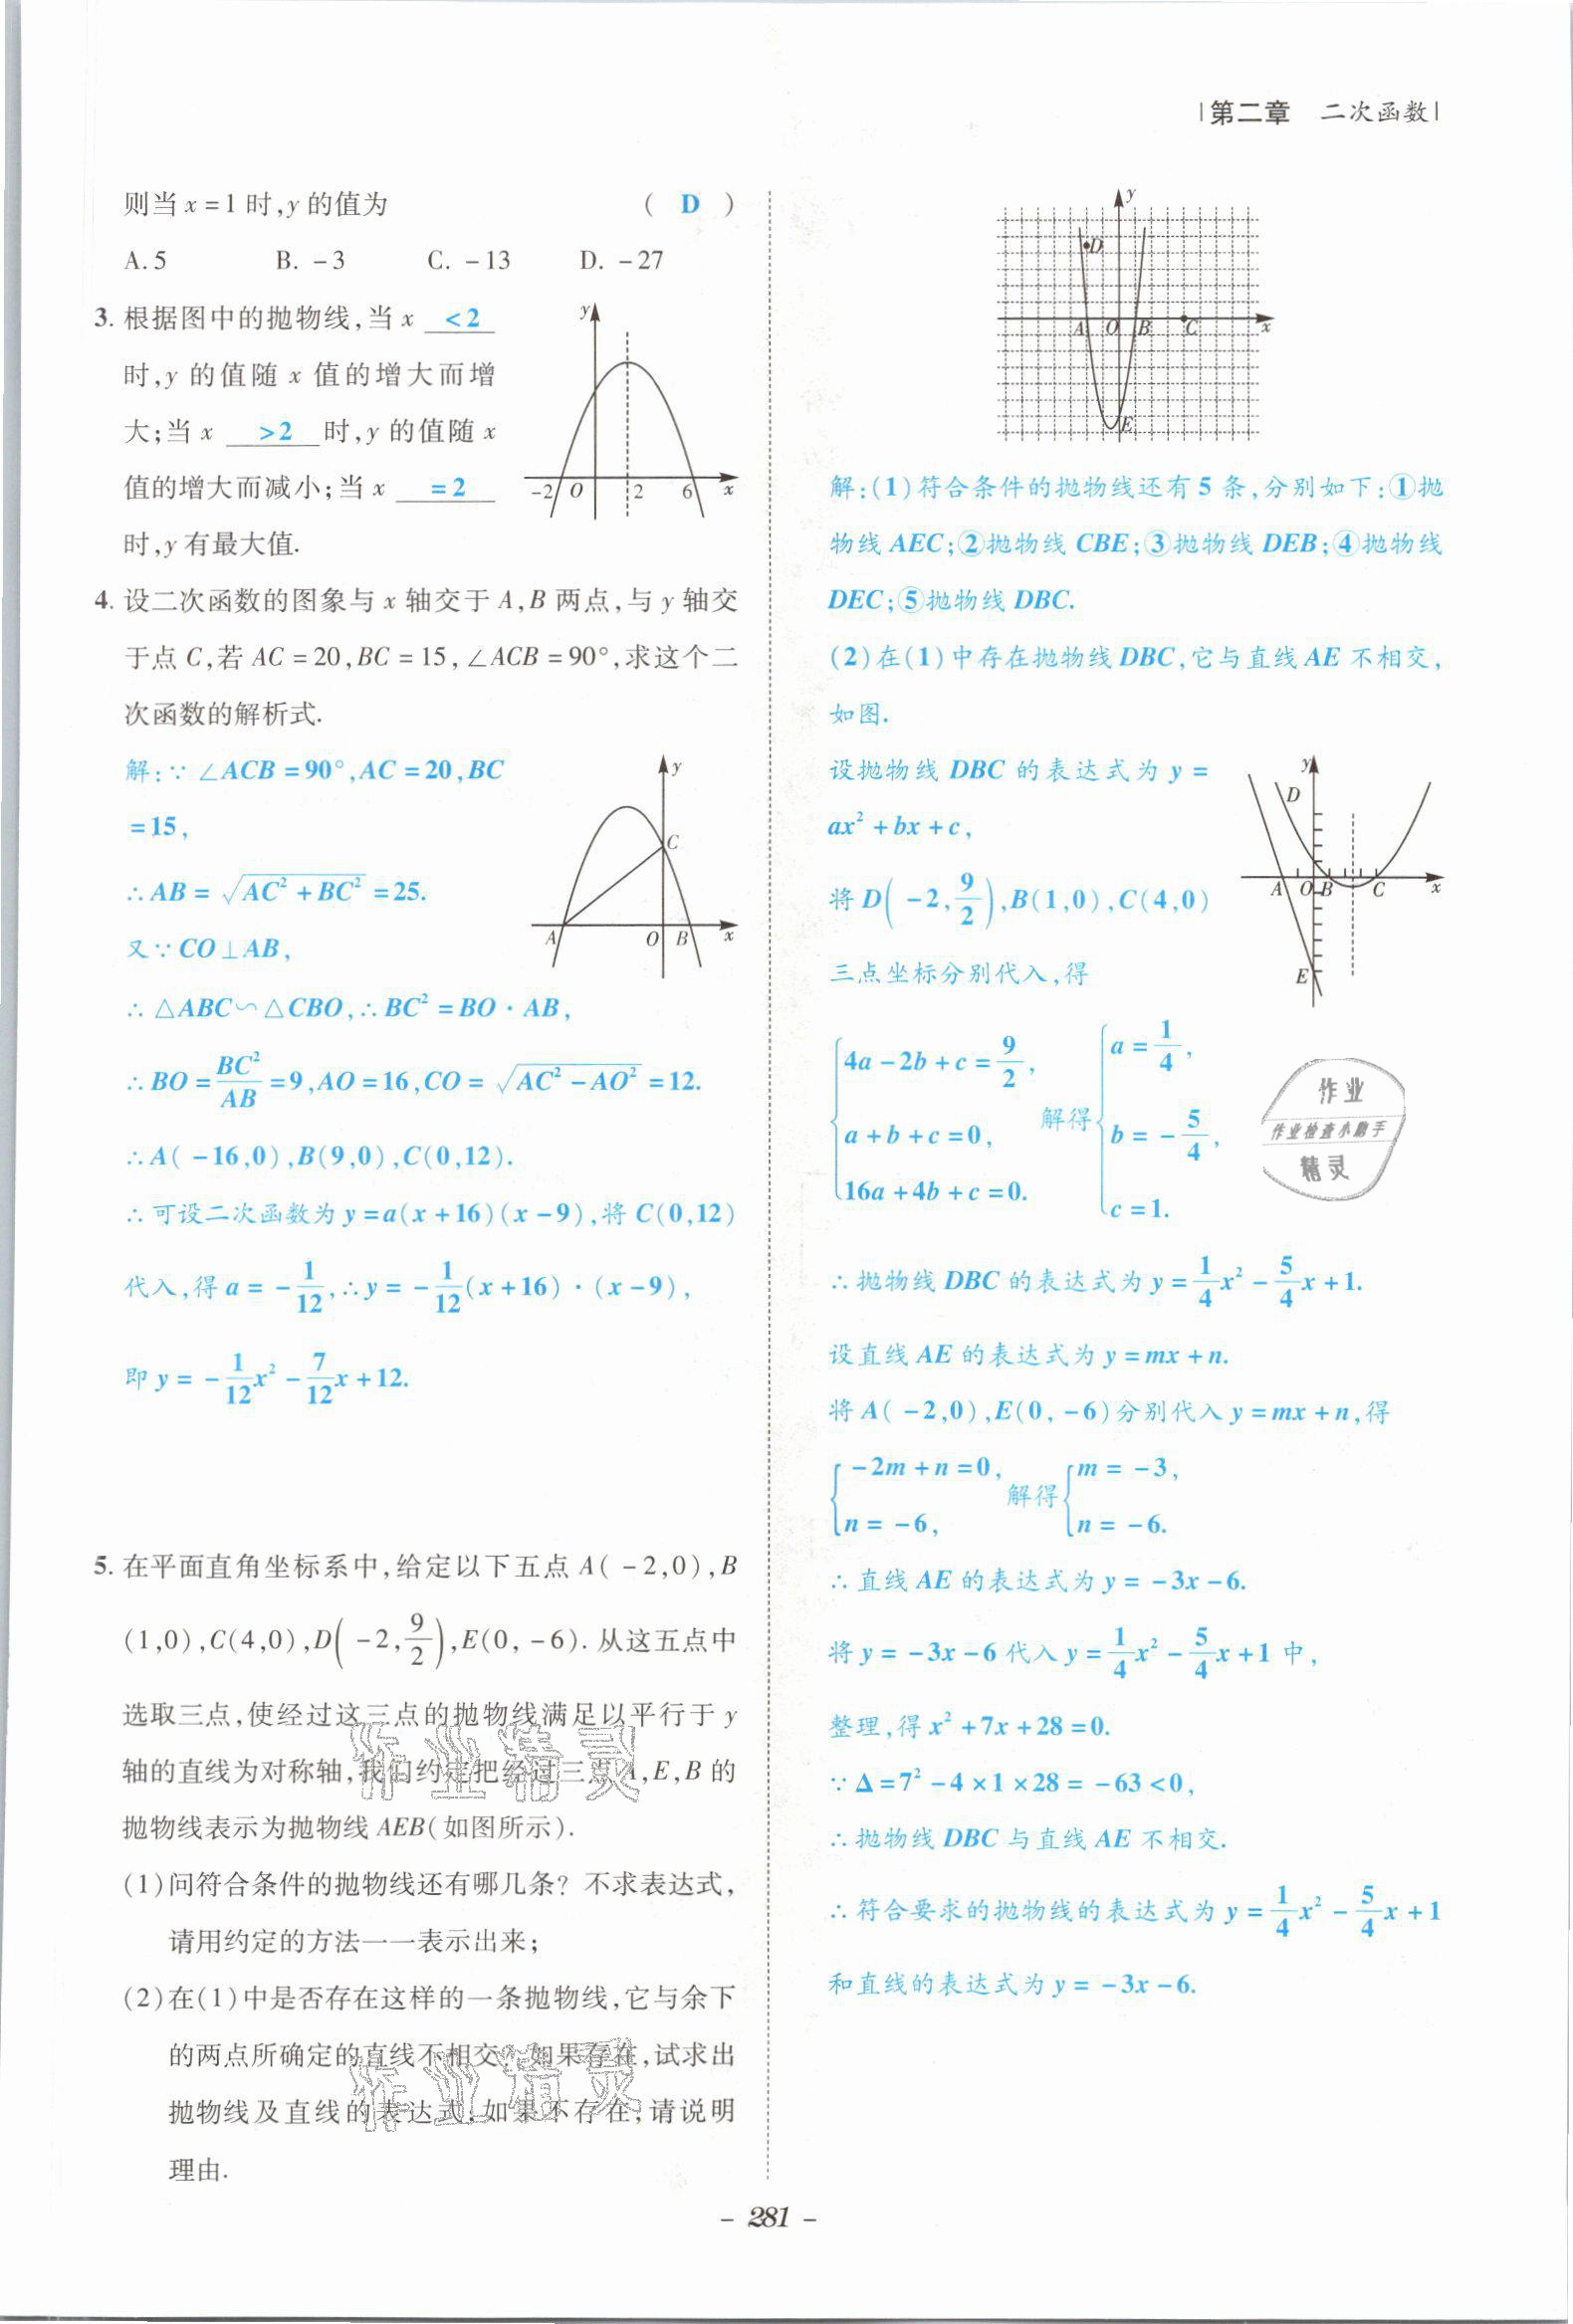 第二章 二次函数
则当x=1时,y的值为 ( D )
A.5 B. -3 C. -13 D. -27
3. 根据图中的抛物线,当x <2
时,y的值随x值的增大而增
大;当x >2 时,y的值随x
值的增大而减小;当x =2
时,y有最大值.
y
-2 O 2 6 x
4. 设二次函数的图象与x轴交于A,B两点,与y轴交
于点C,若AC=20,BC=15,∠ACB=90°,求这个二
次函数的解析式.
解:∵∠ACB=90°,AC=20,BC
=15,
∴AB=√(AC²+BC²)=25.
又∵CO⊥AB,
y
C
A O B x
∴△ABC∽△CBO,∴BC²=BO·AB,
∴BO=BC²/AB=9,AO=16,CO=√(AC²-AO²)=12.
∴A(-16,0),B(9,0),C(0,12).
∴可设二次函数为y=a(x+16)(x-9),将C(0,12)
代入,得a=-1/12,∴y=-1/12(x+16)·(x-9),
即y=-1/12x²-7/12x+12.
5. 在平面直角坐标系中,给定以下五点A(-2,0),B
(1,0),C(4,0),D(-2,9/2),E(0,-6).从这五点中
选取三点,使经过这三点的抛物线满足以平行于y
轴的直线为对称轴,我们约定把经过三点A,E,B的
抛物线表示为抛物线AEB(如图所示).
(1)问符合条件的抛物线还有哪几条? 不求表达式,
请用约定的方法一一表示出来;
(2)在(1)中是否存在这样的一条抛物线,它与余下
的两点所确定的直线不相交? 如果存在,试求出
抛物线及直线的表达式;如果不存在,请说明
理由.
y
D
A O B C x
E
解:(1)符合条件的抛物线还有5条,分别如下:①抛
物线AEC;②抛物线CBE;③抛物线DEB;④抛物线
DEC;⑤抛物线DBC.
(2)在(1)中存在抛物线DBC,它与直线AE不相交,
如图.
设抛物线DBC的表达式为y=
ax²+bx+c,
将D(-2,9/2),B(1,0),C(4,0)
三点坐标分别代入,得
y
D
A O B C x
E
4a-2b+c=9/2,
a+b+c=0,
16a+4b+c=0.
解得
a=1/4,
b=-5/4,
c=1.
∴抛物线DBC的表达式为y=1/4x²-5/4x+1.
设直线AE的表达式为y=mx+n.
将A(-2,0),E(0,-6)分别代入y=mx+n,得
-2m+n=0,
n=-6,
解得
m=-3,
n=-6.
∴直线AE的表达式为y=-3x-6.
将y=-3x-6代入y=1/4x²-5/4x+1中,
整理,得x²+7x+28=0.
∵Δ=7²-4×1×28=-63<0,
∴抛物线DBC与直线AE不相交.
∴符合要求的抛物线的表达式为y=1/4x²-5/4x+1
和直线的表达式为y=-3x-6.
作业
作业检查小助手
精灵
作业精灵
作业精灵
- 281 -